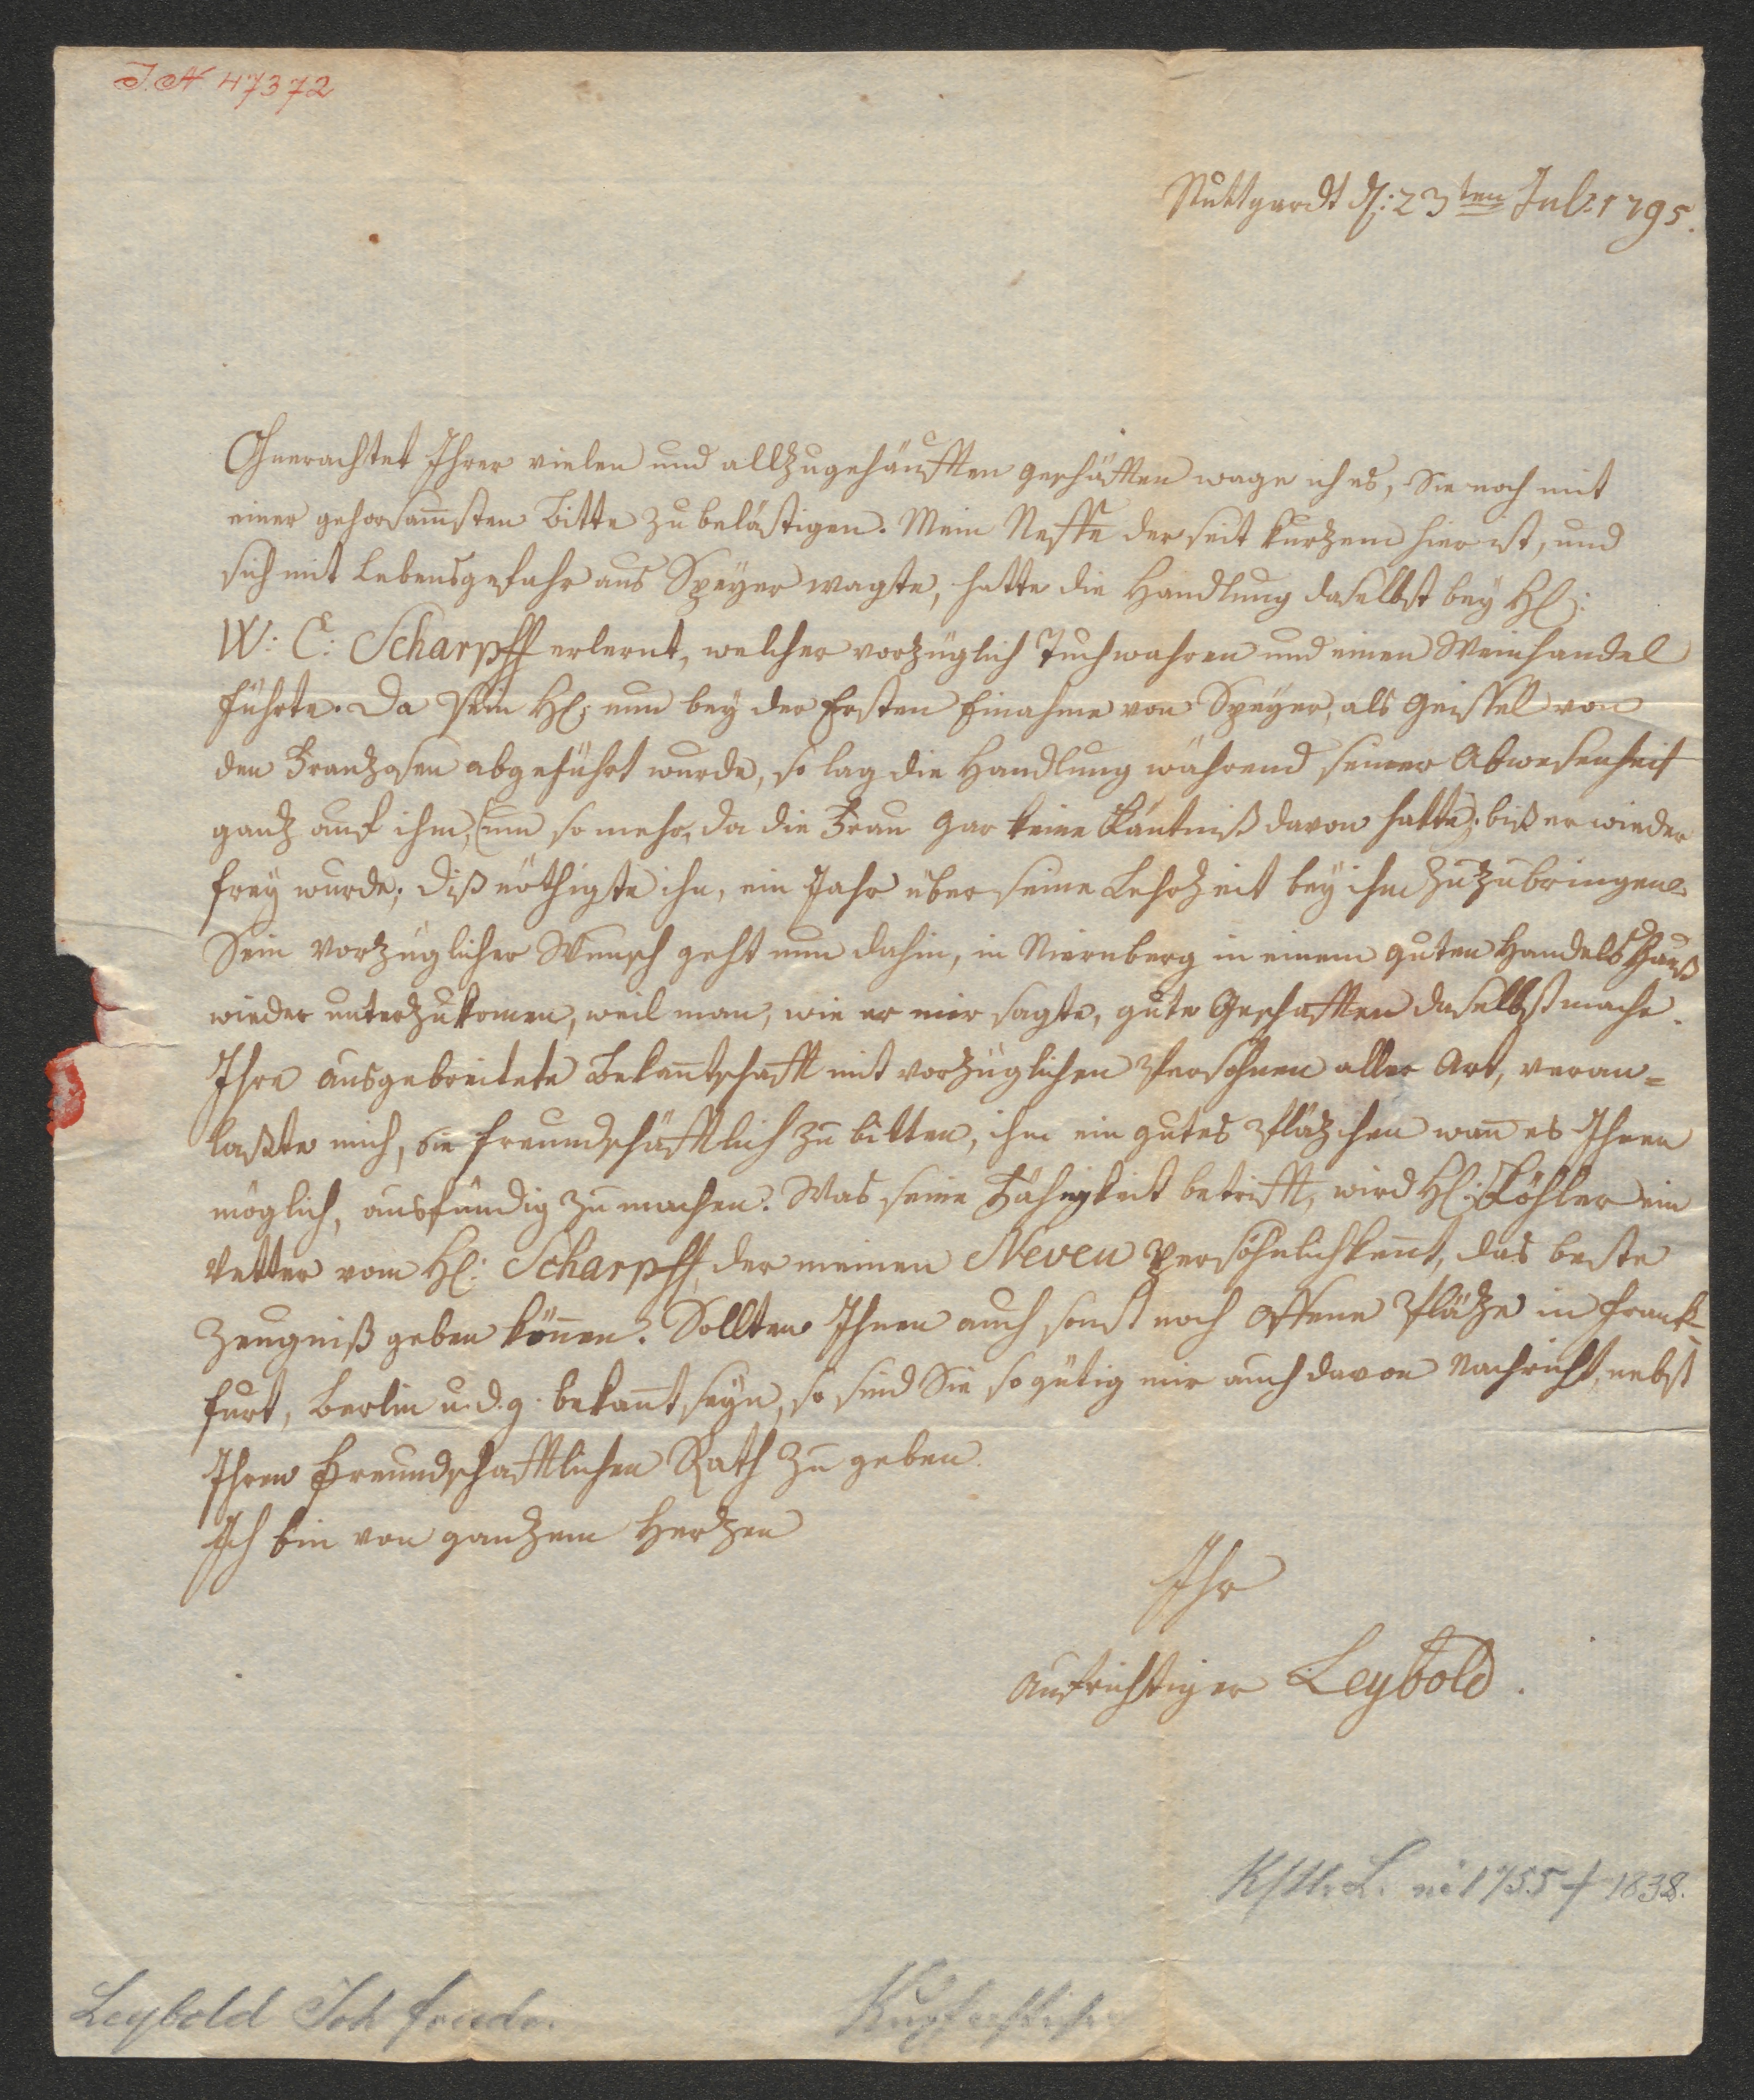 I. N 47372
Stuttgardt d: 23ten Jul: 1795.
Ohnerachtet Ihrer vielen und allzugehäufften geschäfften wage ich es, Sie noch mit
einer gehorsam̄sten Bitte zu belästigen. Mein Neffe der seit kurzem hier ist, und
sich mit Lebensgefahr aus Speyer wagte, hatte die Handlung daselbst bey H:
W: C: Scharpff erlernt, welcher vorzüglich Tuchwahren und einen Weinhandel
führte. Da sein H: nun bey der Ersten Einahme von Speyer, als Geissel von
den Franzosen abgeführt wurde, so lag die Handlung während seiner Abwesenheit
ganz auf ihm, (um so mehr, da die Frau gar keine Käntniß davon hatte,) biß er wieder
frey wurde; diß nöthigte ihn, ein Jahr über seine Lehrzeit bey ihm zuzubringen.
Sein vorzüglicher Wunsch geht nun dahin, in Niernberg in einem guten Handels Hauß
wieder unterzukom̄en, weil man, wie er mir sagte, gute Geschafften daselbst mache.
Ihre ausgebreitete Bekan̄tschafft mit vorzüglichen Persohnen aller Art, veran=
laßte mich, sie freundschäfftlich zu bitten, ihm ein gutes Pläzchen wan̄ es Ihnen
möglich, ausfündig zu machen. Was seine Fähigkeit betrifft, wird H: Köhler ein
Vetter vom H: Scharpff, der meinen Neveu persöhnlich ken̄t, das beste
Zeugniß geben kön̄en. Sollten Ihnen auch sonst noch offene Pläze in Frank-
furt, Berlin u. d. g. bekan̄t seyn, so sind Sie so gütig mir auch davon Nachricht, nebst
Ihrem freundschafftlichen Rath zu geben.
Ich bin von ganzem Herzen
Ihr
aufrichtiger Leybold.
1755 † 1838.
Leybold Joh Friedr.
Kupferstecher